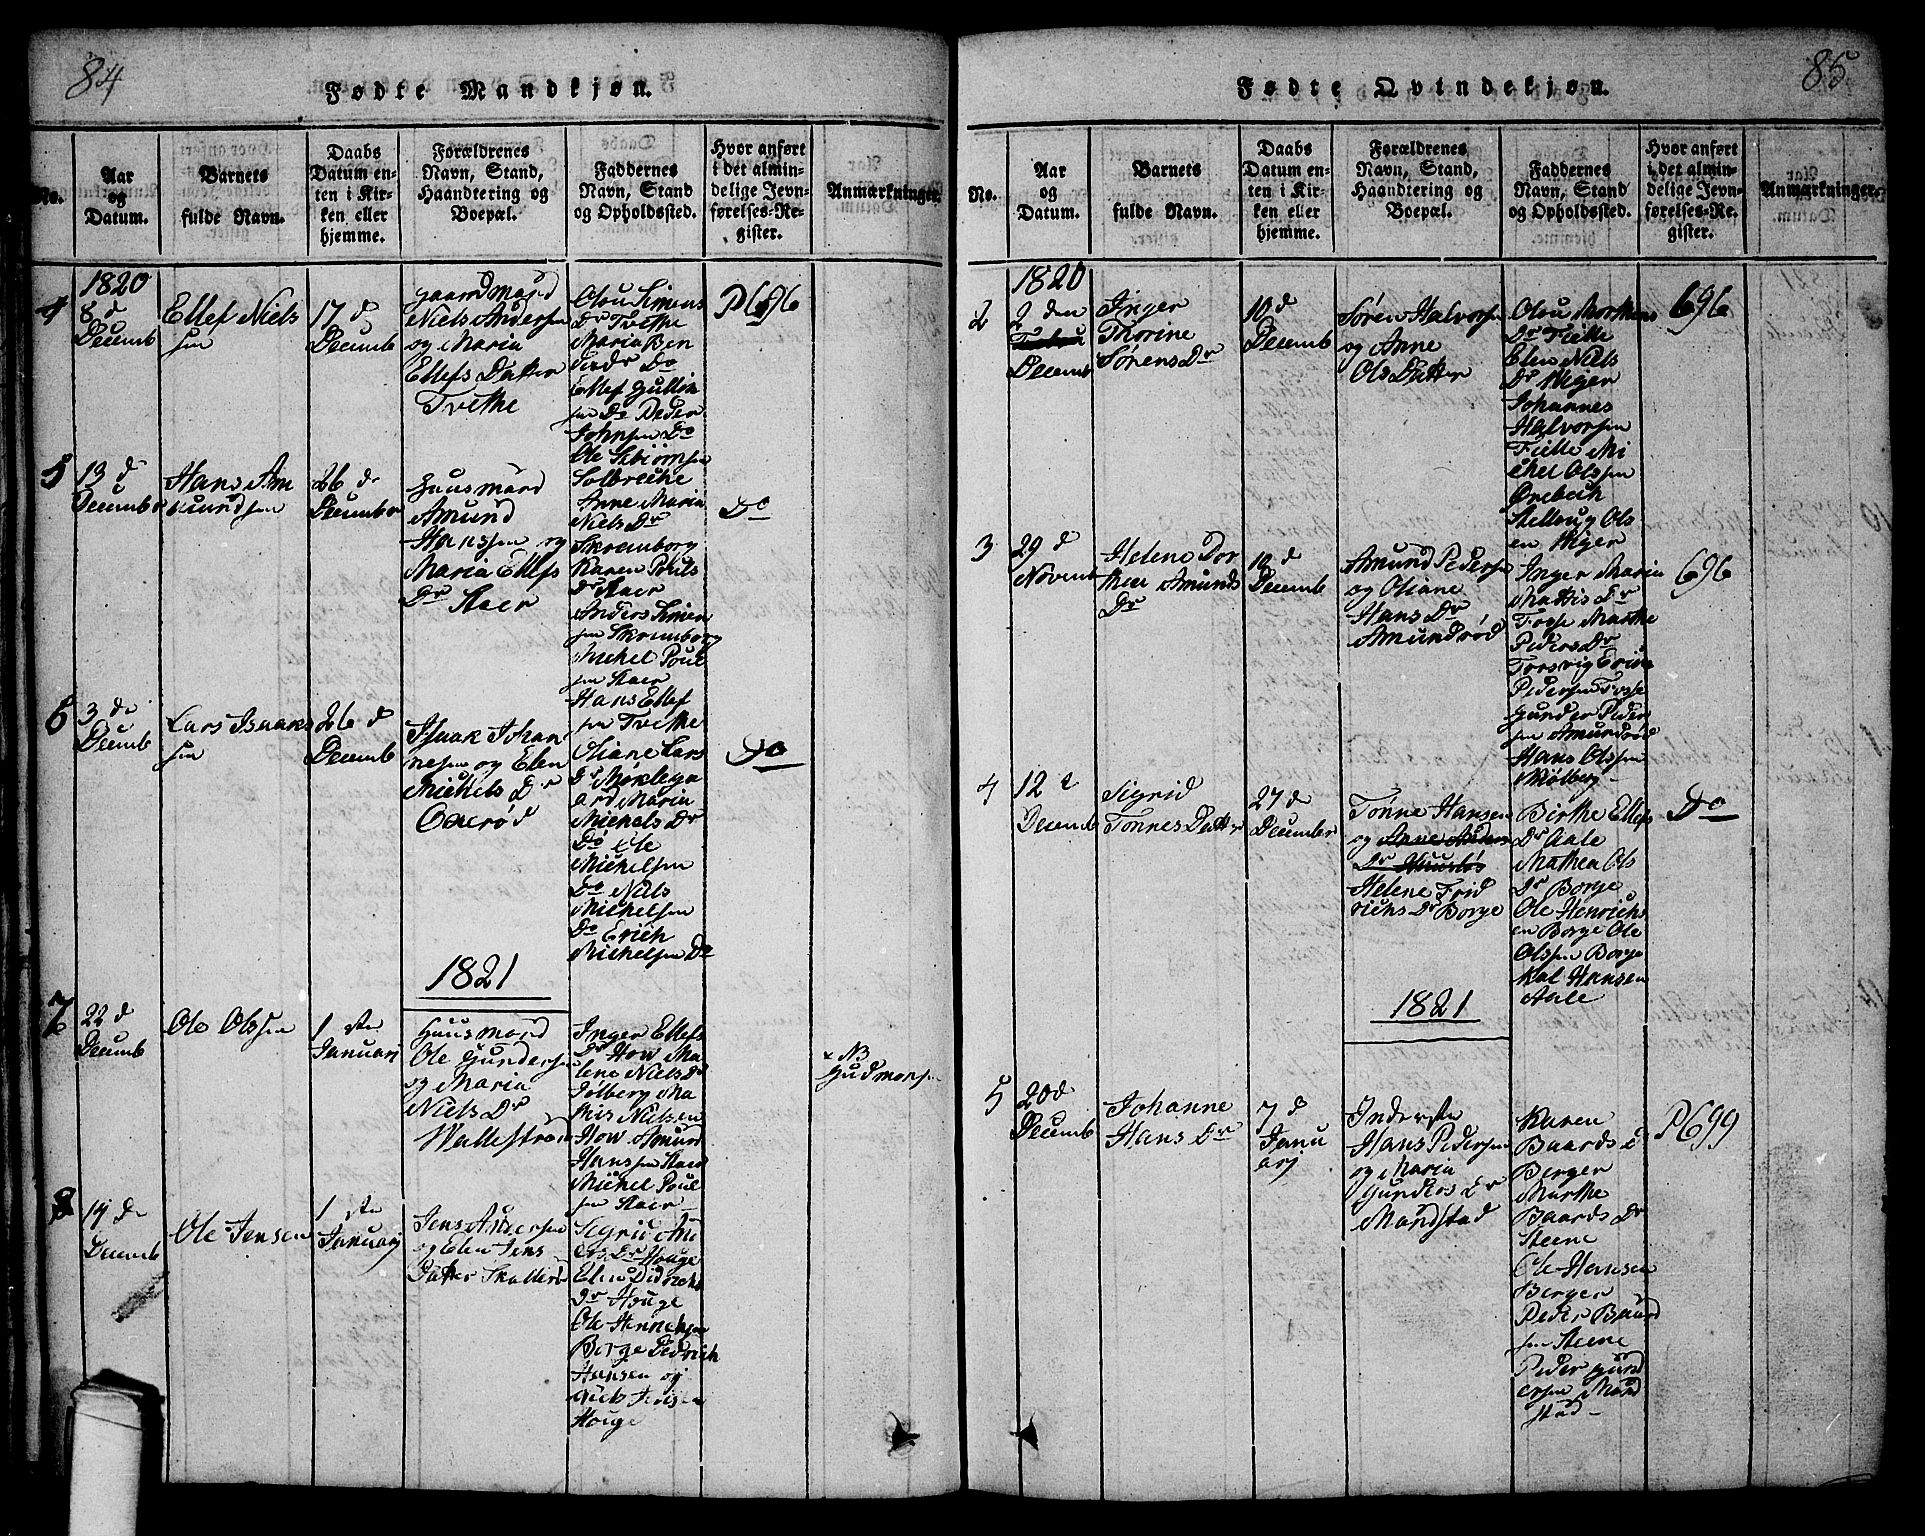 84
Fødte Mandkjøn.
No.
Aar
og
Datum.
Barnets
fulde Navn.
Daabs
Datum en-
ten i Kir-
ken eller
hjemme.
Forældrenes
Navn, Stand,
Haandtering og
Boepæl.
Faddernes
Navn, Stand
og Opholdssted.
Hvor anført
i det almin-
delige Jevn-
førelses-Re-
gister.
Anmærkninger.
1820
4
8 d
Decemb
Ellef Niels
sen
17 d
Decemb
Gaardmand
Niels Andersen
og Maria
Ellefs Datter
Tvethe
Olou Simens
Dr Tvethe
Maria Ben
Do
Ellef Gullik
sen Do Peder
Johnsen Do
Ole
Solbrecke
P 696
5
13 d
December
Hans Am
mundsen
26 d
December
Huusmand
Amund
Hanssen og
Maria Ellefs
Dr Staer
Anne Maria
Niels Dr
Skromborg
Karen Pouls
Dr Staer
Anders Simen
sen Skromborg
Michel Poul
sen Staer
Hans Ellef
sen Tvethe
Do
6
3 d
Decemb
Lars Isaaks
sen
26 d
Decemb
Isaak Johan
nesen og Elen
Michels Dr
Oaerød
Oliane Lars
Dr Møklega
ard Maria
Michels Dr
Do Ole
Michelsen
Do Niels
Michelsen
Do Erich
Michelsen Do
Do
1821
7
22 d
Decemb
Ole Olssen
1 ste
Januari
Huusmand
Ole Gundersen
og Maria
Niels Dr
Wallestrøm
Inger Ellefs
Dr How Ma
lene Niels Dr
Jølberg Ma
this Nielsen
How Amund
Hanssen Staer
Michel Poul
sen Staer
x NB
Gudmons
8
19 d
Decemb
Ole Jensen
1 ste
Januarj
Jens Andersen
og Elen Jens
Datter
Sigrid An
ders Dr Houge
Elen Didrichs
Dr Houge
Ole Henrichsen
Borge Didrich
Hansen og
Niels Jensen
Houge
85
Fødte Qvindekjøn.
No.
Aar
og
Datum.
Barnets
fulde Navn.
Daabs
Datum en-
ten i Kir-
ken eller
hjemme.
Forældrenes
Navn, Stand,
Haandtering og
Boepæl.
Faddernes
Navn, Stand
og Opholdssted.
Hvor anført
i det almin-
delige Jevn-
førelses-Re-
gister.
Anmærkninger.
1820
2
2 den
Decemb
Inger
Thorine
Sørens Dr
10 d
Decemb
Søren Halvorsen
og Anne
Ols Datter
Olou Morthens
Dr Fielle
Elen Niels
Dr Weger
Johannes
Halvorsen
Fielle Mi
chel Olssen
Ørebech
Stelloug Ols
en Weger
696
3
29 d
Novemb
Helene Dor
thea Amunds
Dr
10 d
Decemb
Amund Pedersen
og Oliane
Hans Dr
Amundrød
Inger Maria
Mattis Dr
Fosse Marthe
Peders Dr
Torsvig Erich
Pedersen Fosse
Gunder Peder
sen Amundrød
Hans Olssen
Mølberg
696
4
12 d
Decemb
Sigrid
Tønnes Datter
27 d
December
Tønne Hansen
og Anne Anders
Dr
Helene Frid
richs Dr Borge
Birthe Ellefs
Dr Aale
Mathea Ols
Dr Borge
Ole Henrichs
en Borge Ole
Olssen Borge
Hansen
Aale
Do
1821
5
20 d
Decemb
Johanne
Hans Dr
7 d
Janu
arj
Inderste
Hans Pedersen
og Maria
Gunders Dr
Mandstad
Karen
Baards D
Berger
Marthe
Baards Dr
Steene
Ole Hansen
Berger
Peder Baard
sen Steene
Peder Gund
ersen Mand
stad
P 699